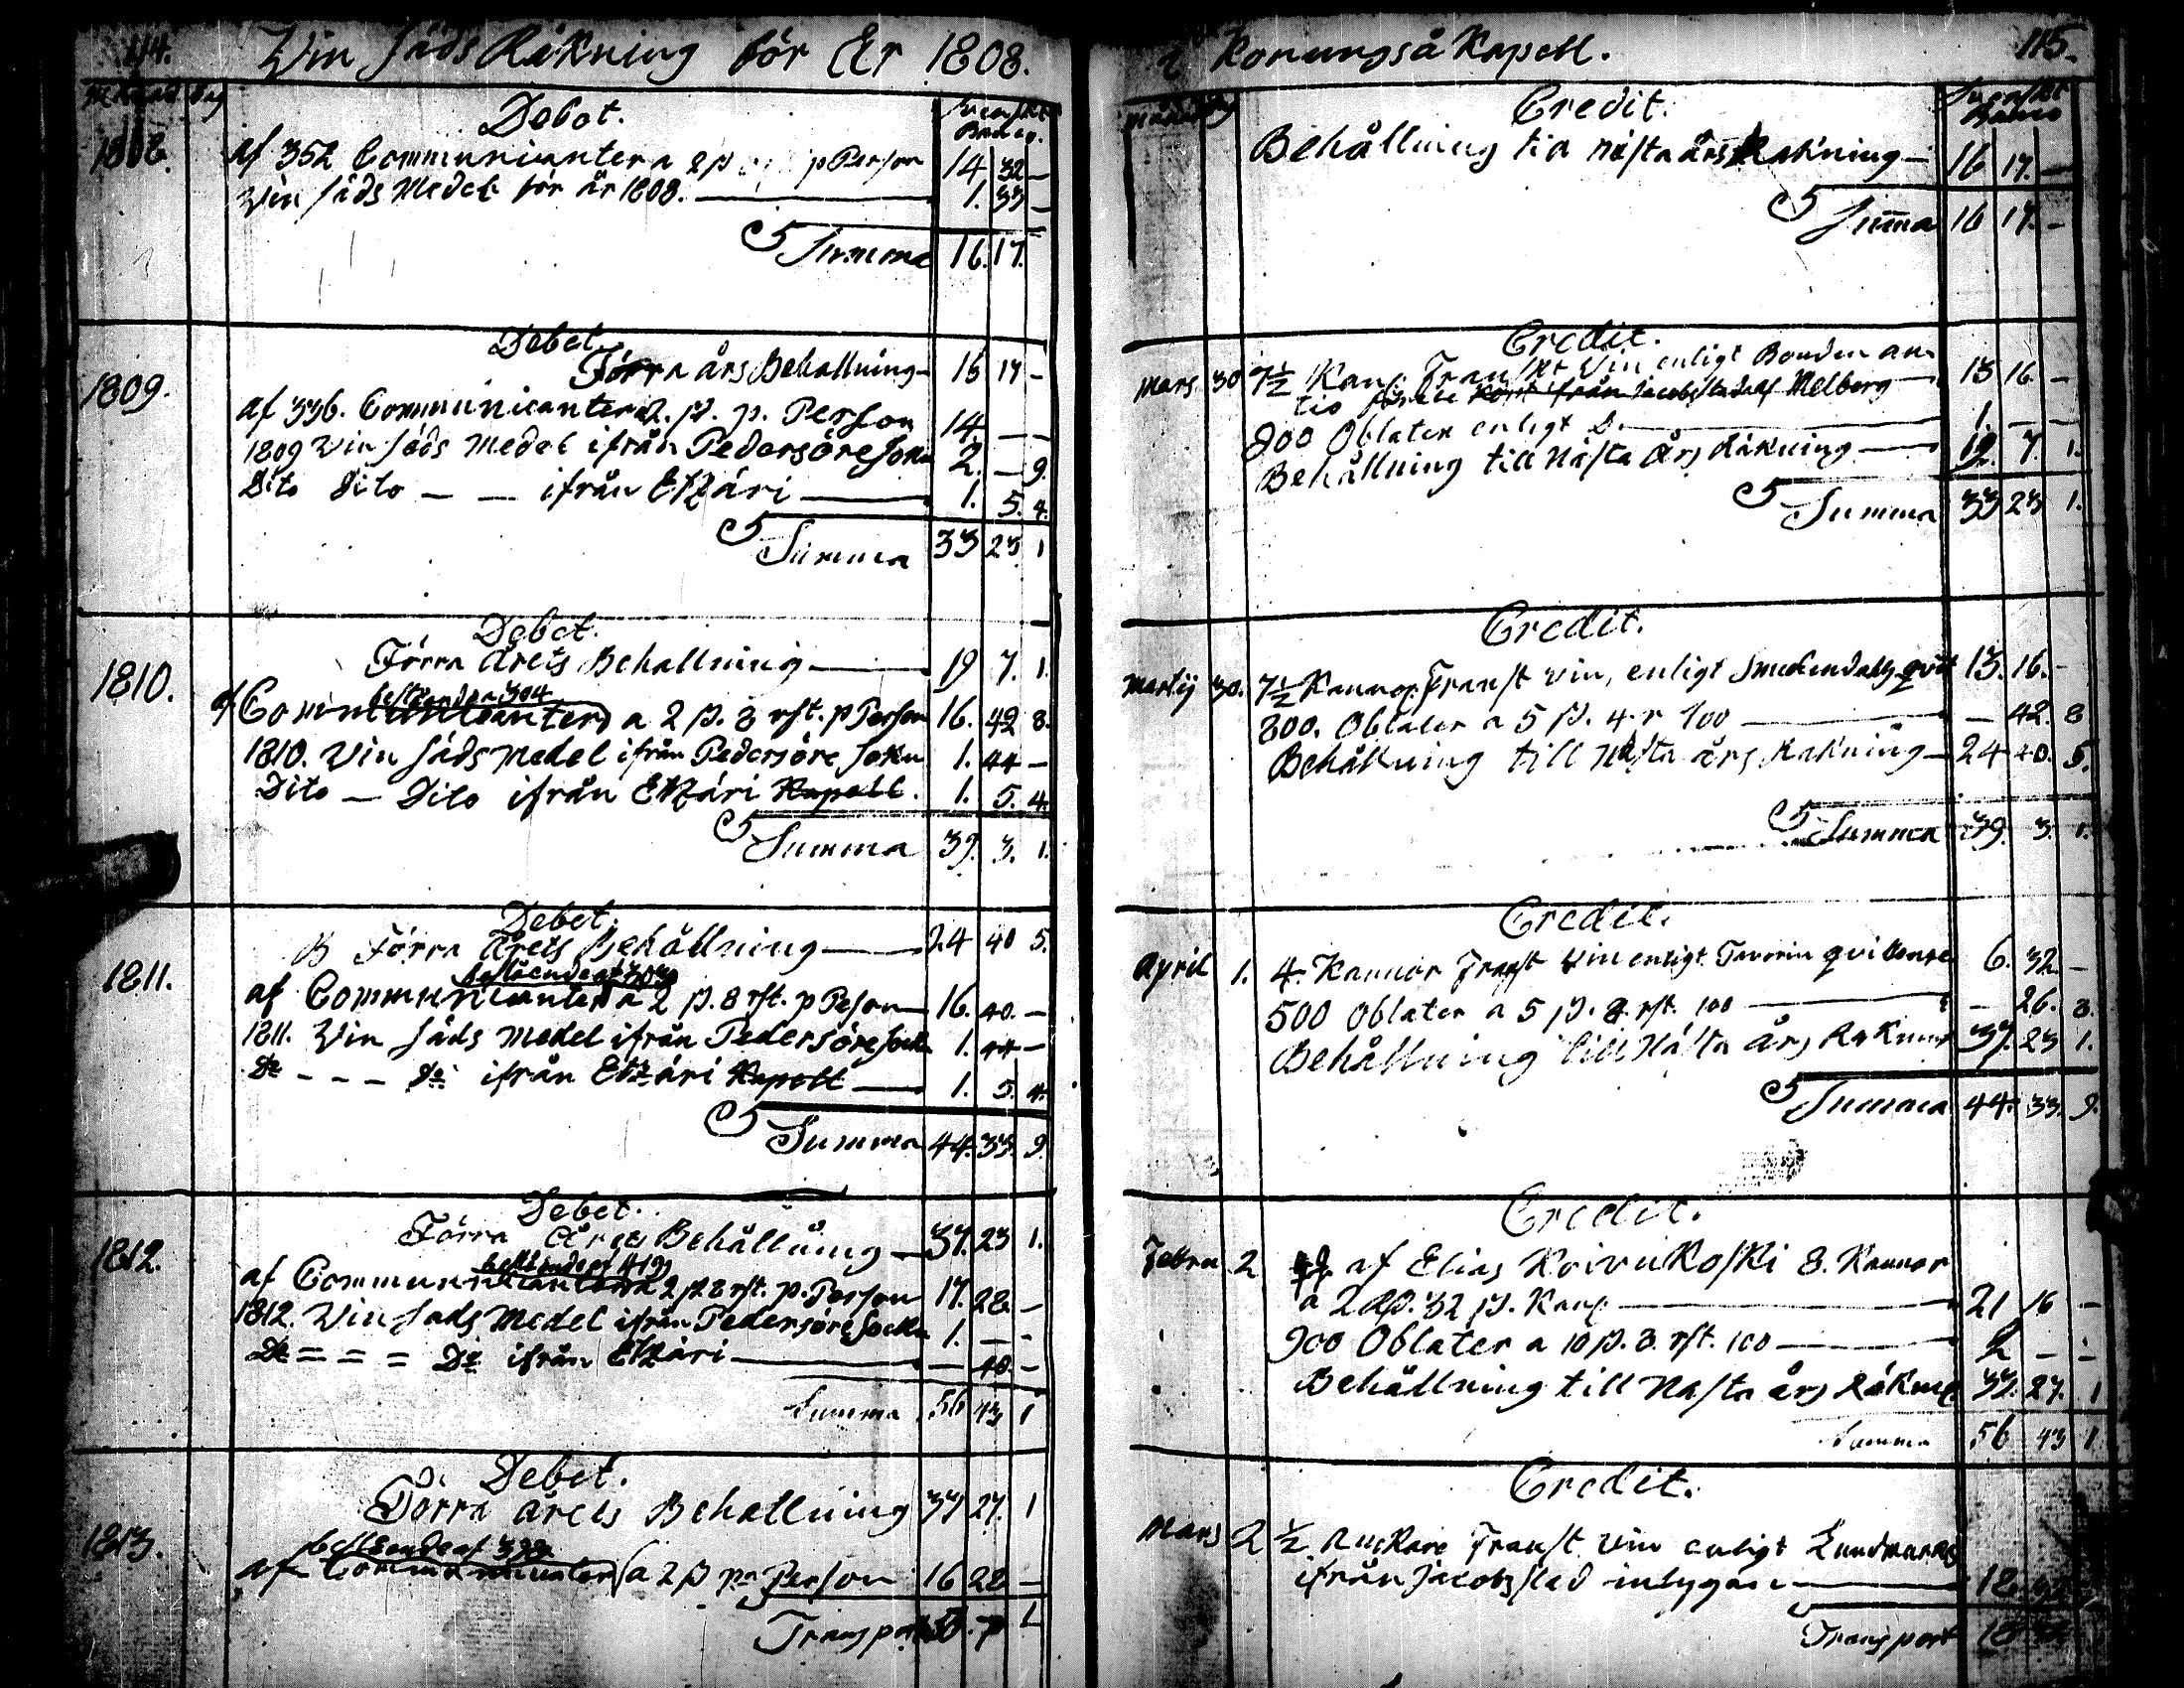 114.
Vin Säds Räkning för År 1808.
Månad Dag
Debet.
1808.
af 352 Communicanter a 2 β p Person 14 32 —
Vin säds Medel för år 1808. — 1. 33 —
Summa 16. 17.
Debet.
1809.
Förra års Behallning — 16 17 —
af 336. Communicanter a 2. β. p. Person 14 — —
1809 Vin säds Medel ifrån Pedersöre Sokn 2. — 9.
Dito Dito — — ifrån Etzäri — 1. 5. 4.
Summa 33 23 1
Debet.
1810.
Förra årets Behallning — 19 7. 1.
bestående af 304
af Communicanter a 2 β. 8 rst. p Person 16. 42 8.
1810. Vin säds medel ifrån Pedersöre Sokn 1. 44 —
Dito — Dito ifrån Etzäri Kapell. 1. 5. 4.
Summa 39. 3. 1.
Debet.
1811.
Förra Årets Behållning — 24 40 5.
bestående af 303
af Communicanter a 2 β. 8 rst. p Peson — 16. 40. —
1811. Vin säds Medel ifrån Pedersöre Sock 1. 44 —
Do - - - Do ifrån Etzäri Kapell — 1. 5. 4.
Summa 44. 33. 9.
Debet.
1812.
Förra Årets Behållning — 37. 23 1.
af Communicanter a 2 β 8 rst. p. Person 17. 28 —
1812. Vin sads Medel ifrån Pedersöre Socken 1. — -
Do = = = Do ifrån Etzäri — 40. —
Summa 56 43 1
Debet.
1813.
Förra årets Behallning 33 27. 1
af Communicanter a 2 β pr Person 16 28 —
Transport 50. 7 1
i Konungså Kapell.
115.
Månad Dag
Credit.
Svenskt Banco
Behållning till nästa års Räkning — 16 17. —
Summa 16 17. —
Credit.
Mars 30 7½ Kan. Franskt Vin enligt Bonden
Melberg — 13 16. —
900 Oblater enligt D. — 1 — —
Behållning till Nästa Års Räkning — 19. 7. 1.
Summa 33 23 1.
Credit.
Martij 30. 7½ Kannor Franst vin, enligt qvit 13. 16. —
800. Oblater a 5 β. 4. r 100 — — 42. 8
Behållning till Nästa års Räkning — 24 40. 5.
Summa 39. 3. 1.
Credit.
April 1. 4. Kannor Franst Vin enligt qvittence 6. 32. —
500 Oblater a 5 β. rst. 100 — — 26. 8.
Behållning till Nästa Års Räkning 37. 23 1.
Summa 44. 33. 9.
Credit.
Febru 2 af Elias Koivukoski 8. Kannor
a 2 Rβ. 32 β. Kan. — 21 16 —
900 Oblater a 10 β. 8. rst. 100 — 2 — —
Behållning till Nasta års Räkning 33. 27. 1
Summa 56 43 1
Credit.
Mars 2 ½ Anckare Franst Vin enligt
ifrån Jacobstad intygan — 18
Transport 18